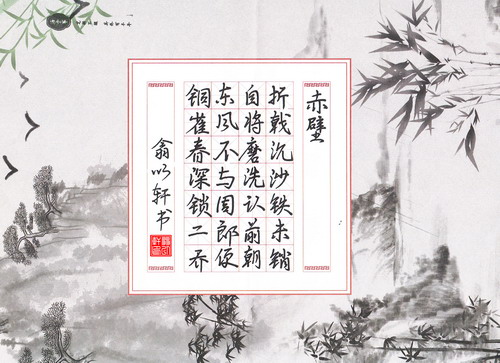 赤壁
折戟沉沙铁未销
自将磨洗认前朝
东风不与周郎便
铜雀春深锁二乔
翁以轩书